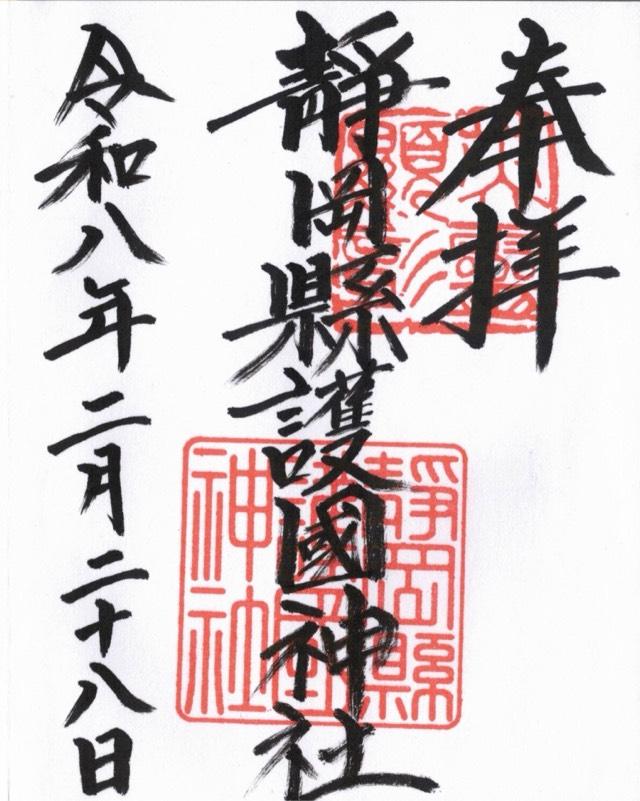 奉拝
靜岡縣護國神社
令和八年二月二十八日
靜岡縣
護國
神社